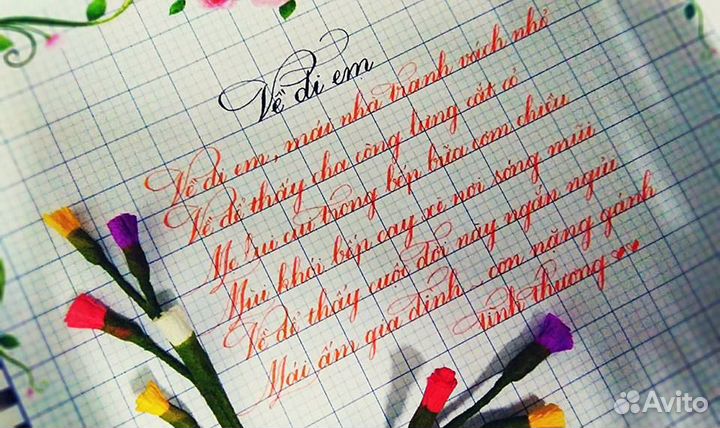 Về đi em
Về đi em, mái nhà tranh vách nhỏ
Về để thấy cha còng lưng cắt cỏ
Mẹ lui cui trong bếp bữa cơm chiều
Mùi khói bếp cay xè nơi sống mũi
Về để thấy cuộc đời này ngắn ngủi
Mái ấm gia đình, con nặng gánh
tình thương
Avito